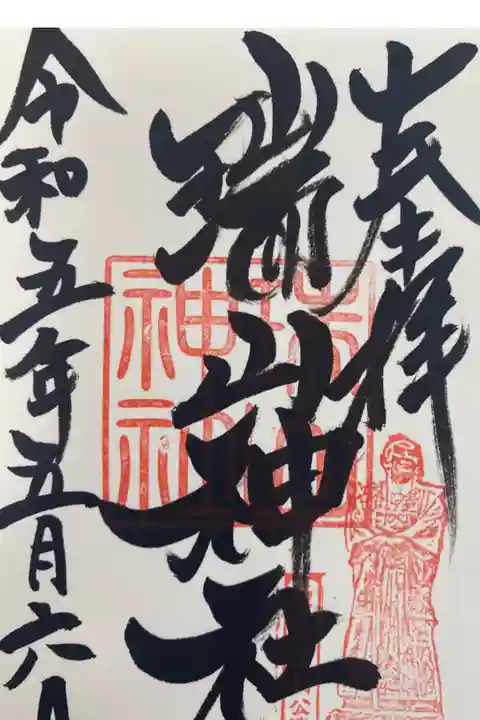 奉拝
瑞山神社
令和五年五月六日
瑞山神社